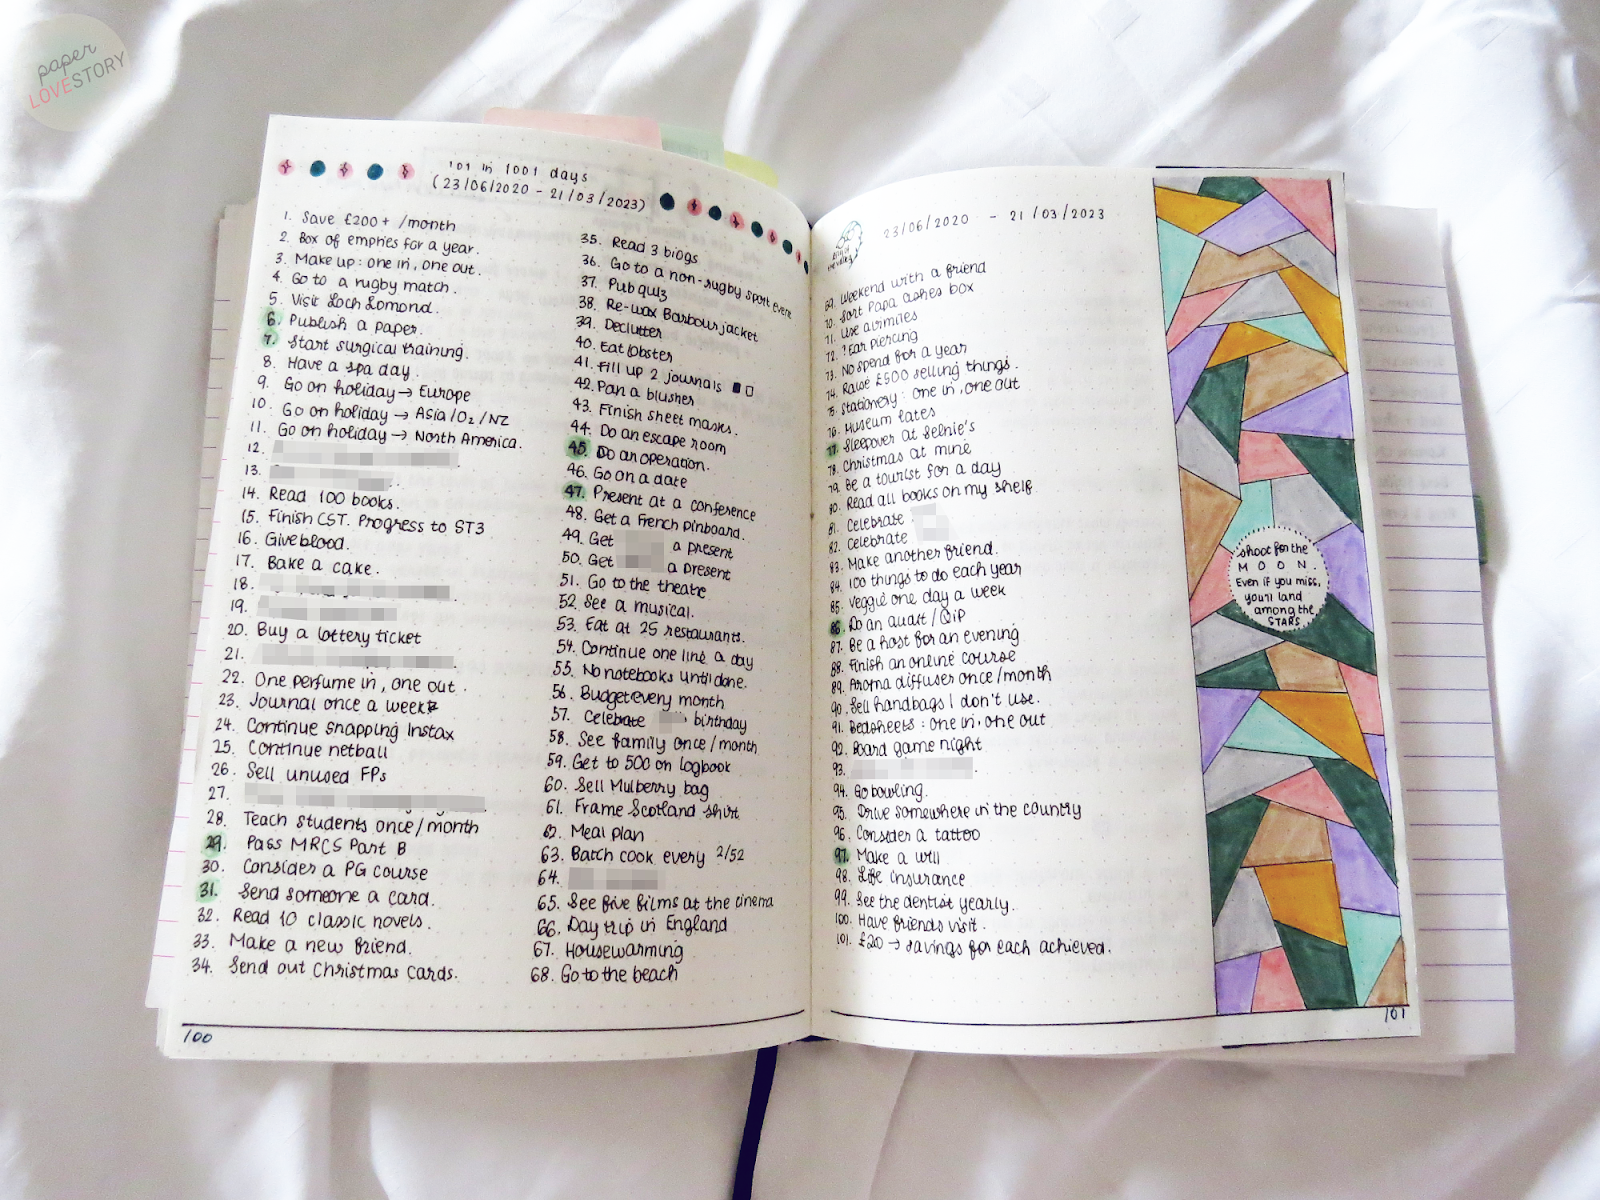 paper
LOVESTORY
101 in 1001 days
(23/06/2020 - 21/03/2023)
1. Save £200+ /month
2. Box of empties for a year.
3. Make up: one in, one out.
4. Go to a rugby match.
5. Visit Loch Lomond.
6. Publish a paper.
7. Start surgical training.
8. Have a spa day.
9. Go on holiday → Europe
10. Go on holiday → Asia/Oz/NZ
11. Go on holiday → North America.
12.
13.
14. Read 100 books.
15. Finish CST. Progress to ST3
16. Give blood.
17. Bake a cake.
18.
19.
20. Buy a lottery ticket
21.
22. One perfume in, one out.
23. Journal once a week
24. Continue snapping Instax
25. Continue netball
26. Sell unused FPs
27.
28. Teach students once/month
29. Pass MRCS Part B
30. Consider a PG course
31. Send someone a card.
32. Read 10 classic novels.
33. Make a new friend.
34. Send out Christmas cards.
35. Read 3 biogs
36. Go to a non-rugby sport event
37. Pub quiz
38. Re-wax Barbour jacket
39. Declutter
40. Eat lobster
41. Fill up 2 journals
42. Pan a blusher
43. Finish sheet masks.
44. Do an escape room
45. Do an operation.
46. Go on a date
47. Present at a conference
48. Get a French pinboard.
49. Get a present
50. Get a present
51. Go to the theatre
52. See a musical.
53. Eat at 25 restaurants.
54. Continue one line a day
55. No notebooks until done.
56. Budget every month
57. Celebrate birthday
58. See family once/month
59. Get to 500 on logbook
60. Sell Mulberry bag
61. Frame Scotland shirt
62. Meal plan
63. Batch cook every 2/52
64.
65. See five films at the cinema
66. Day trip in England
67. Housewarming
68. Go to the beach
100
23/06/2020 - 21/03/2023
69. Weekend with a friend
70. Sort Papa ashes box
71. Use airmiles
72. ?Ear piercing
73. No spend for a year
74. Raise £500 selling things.
75. Stationery: one in, one out
76. Museum lates
77. Sleepover at Selnie's
78. Christmas at mine
79. Be a tourist for a day
80. Read all books on my shelf
81. Celebrate
82. Celebrate
83. Make another friend.
84. 100 things to do each year
85. Veggie one day a week
86. Do an audit/QiP
87. Be a host for an evening
88. Finish an online course
89. Aroma diffuser once/month
90. Sell handbags I don't use.
91. Bedsheets: one in, one out
92. Board game night
93.
94. Go bowling.
95. Drive somewhere in the country
96. Consider a tattoo
97. Make a will
98. Life insurance
99. See the dentist yearly.
100. Have friends visit.
101. £20 → savings for each achieved.
Shoot for the
MOON.
Even if you miss,
you'll land
among the
STARS
101